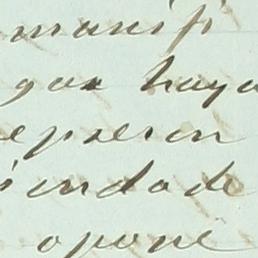 manifi
que haya
epresen
iendade
opone